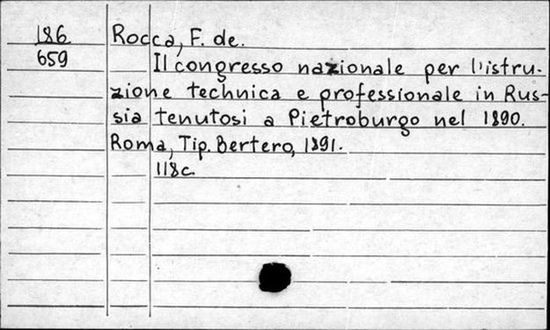 186 Rocca, F. de.
659 Il congresso nazionale per l'istru-
zione technica e professionale in Rus-
sia tenutosi a Pietroburgo nel 1890.
Roma, Tip. Bertero, 1891.
118c